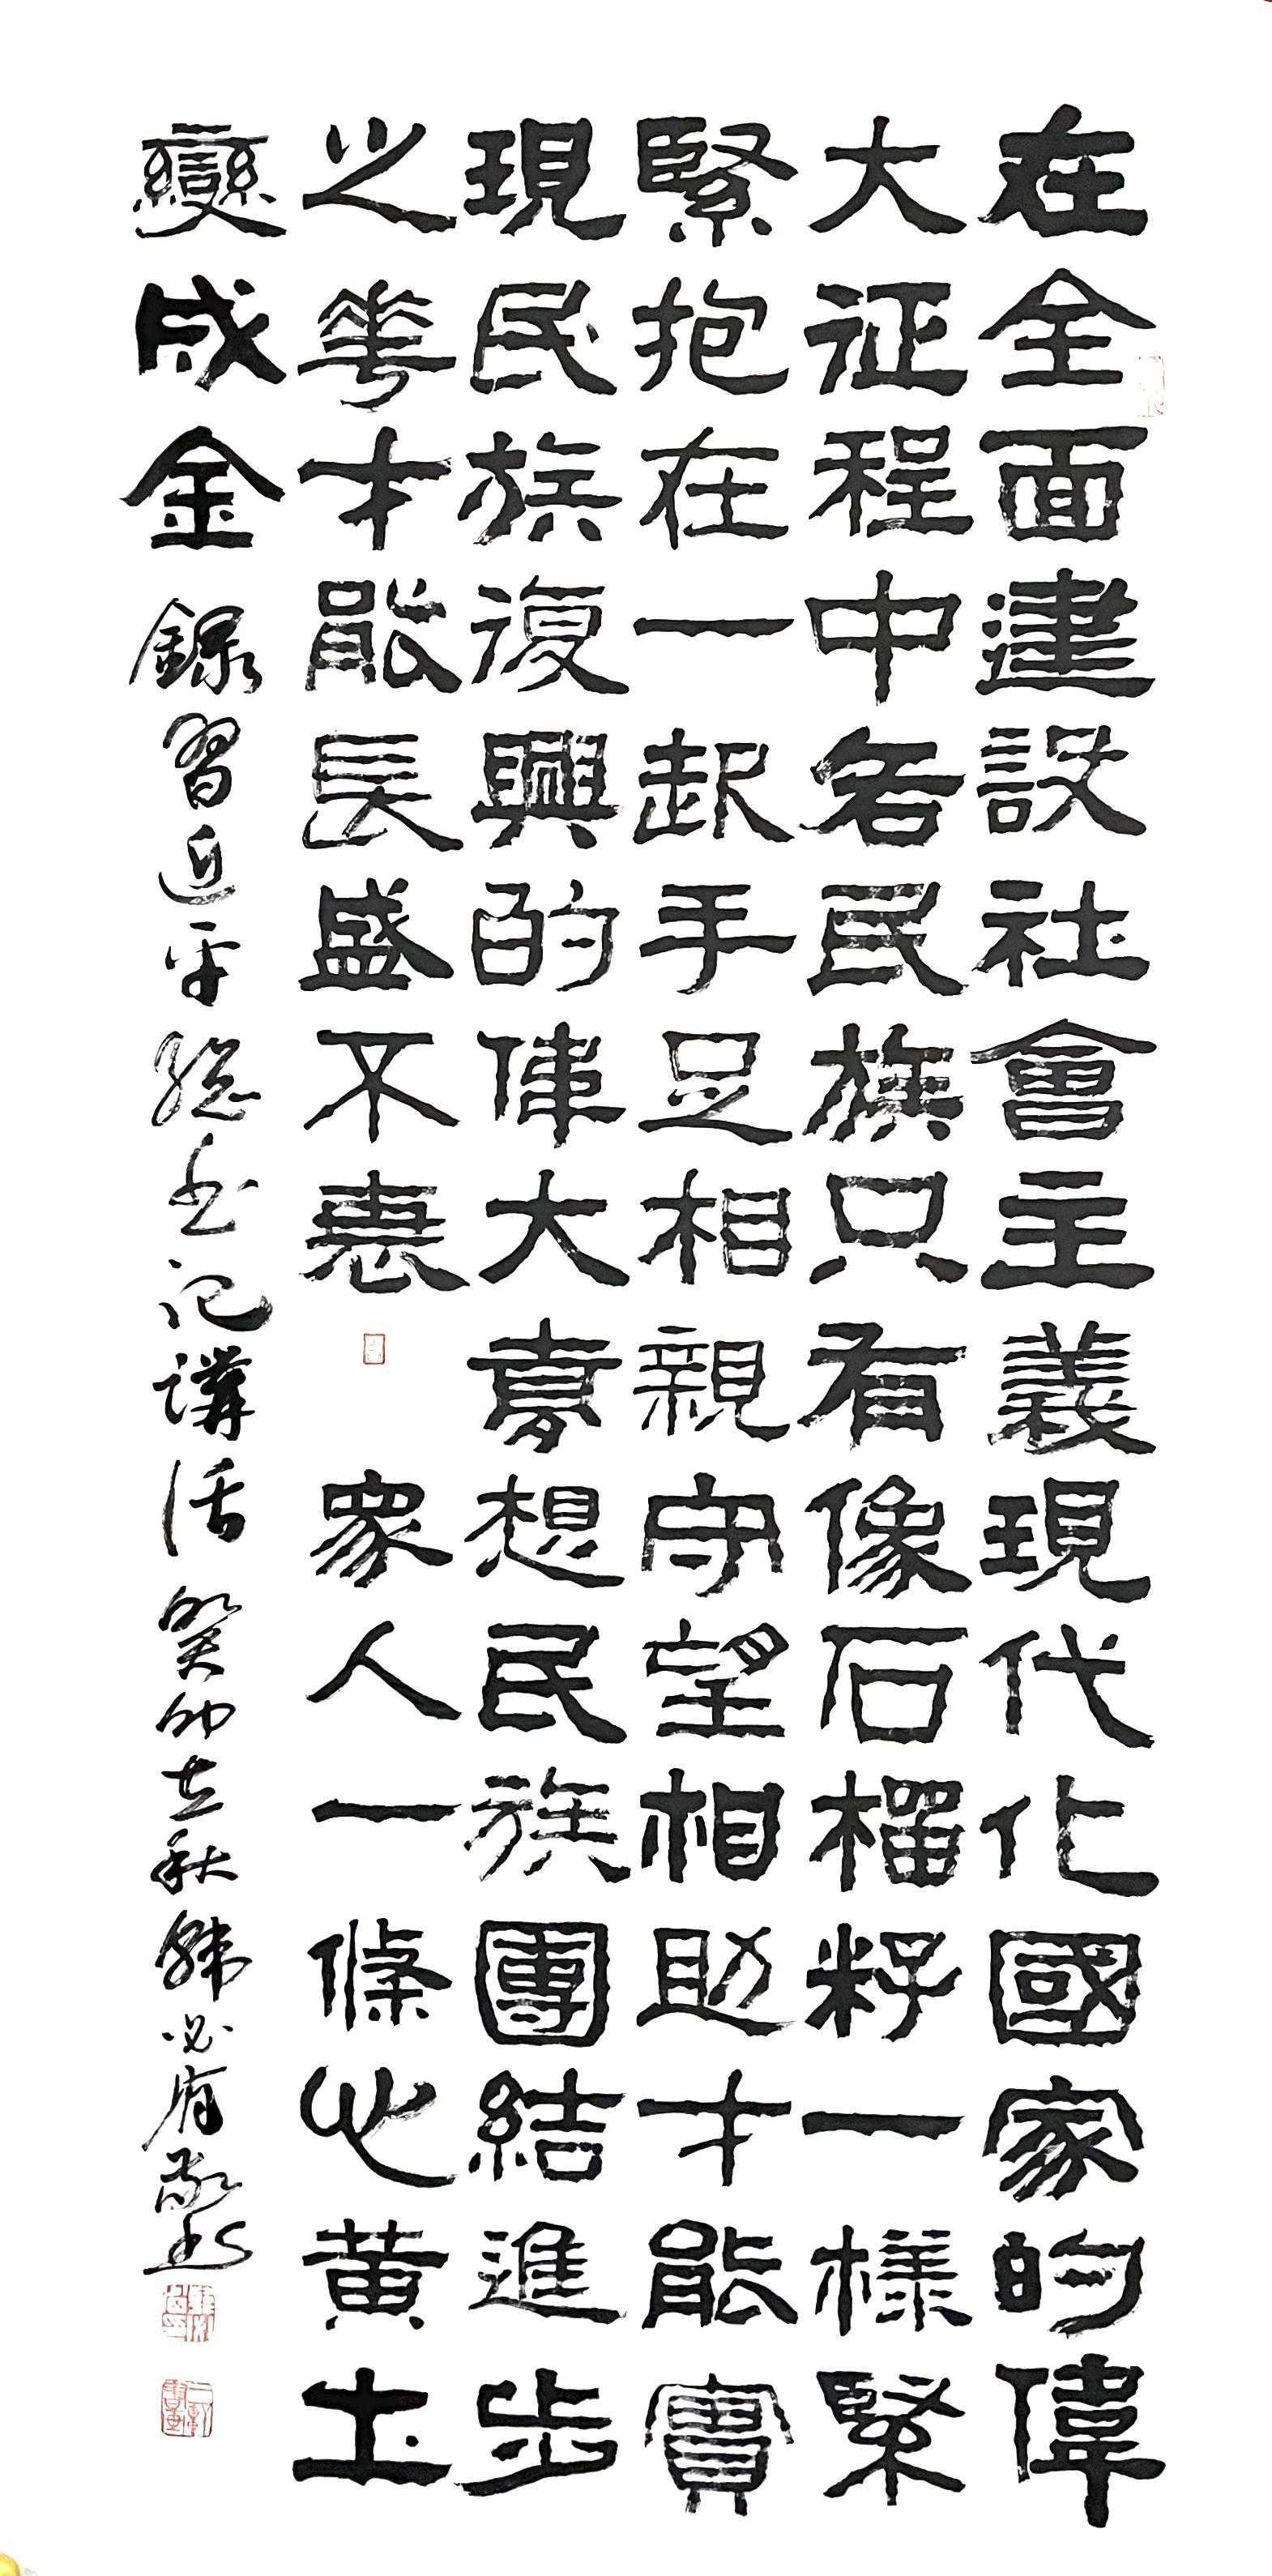 在全面建設社會主義現代化國家的偉
大征程中各民族只有像石榴籽一樣緊
緊抱在一起手足相親守望相助才能實
現民族復興的偉大夢想民族團結進步
之華才能長盛不衰 眾人一條心黃土
變成金 錄習近平總书记講话 癸卯立秋 韩必 敬书